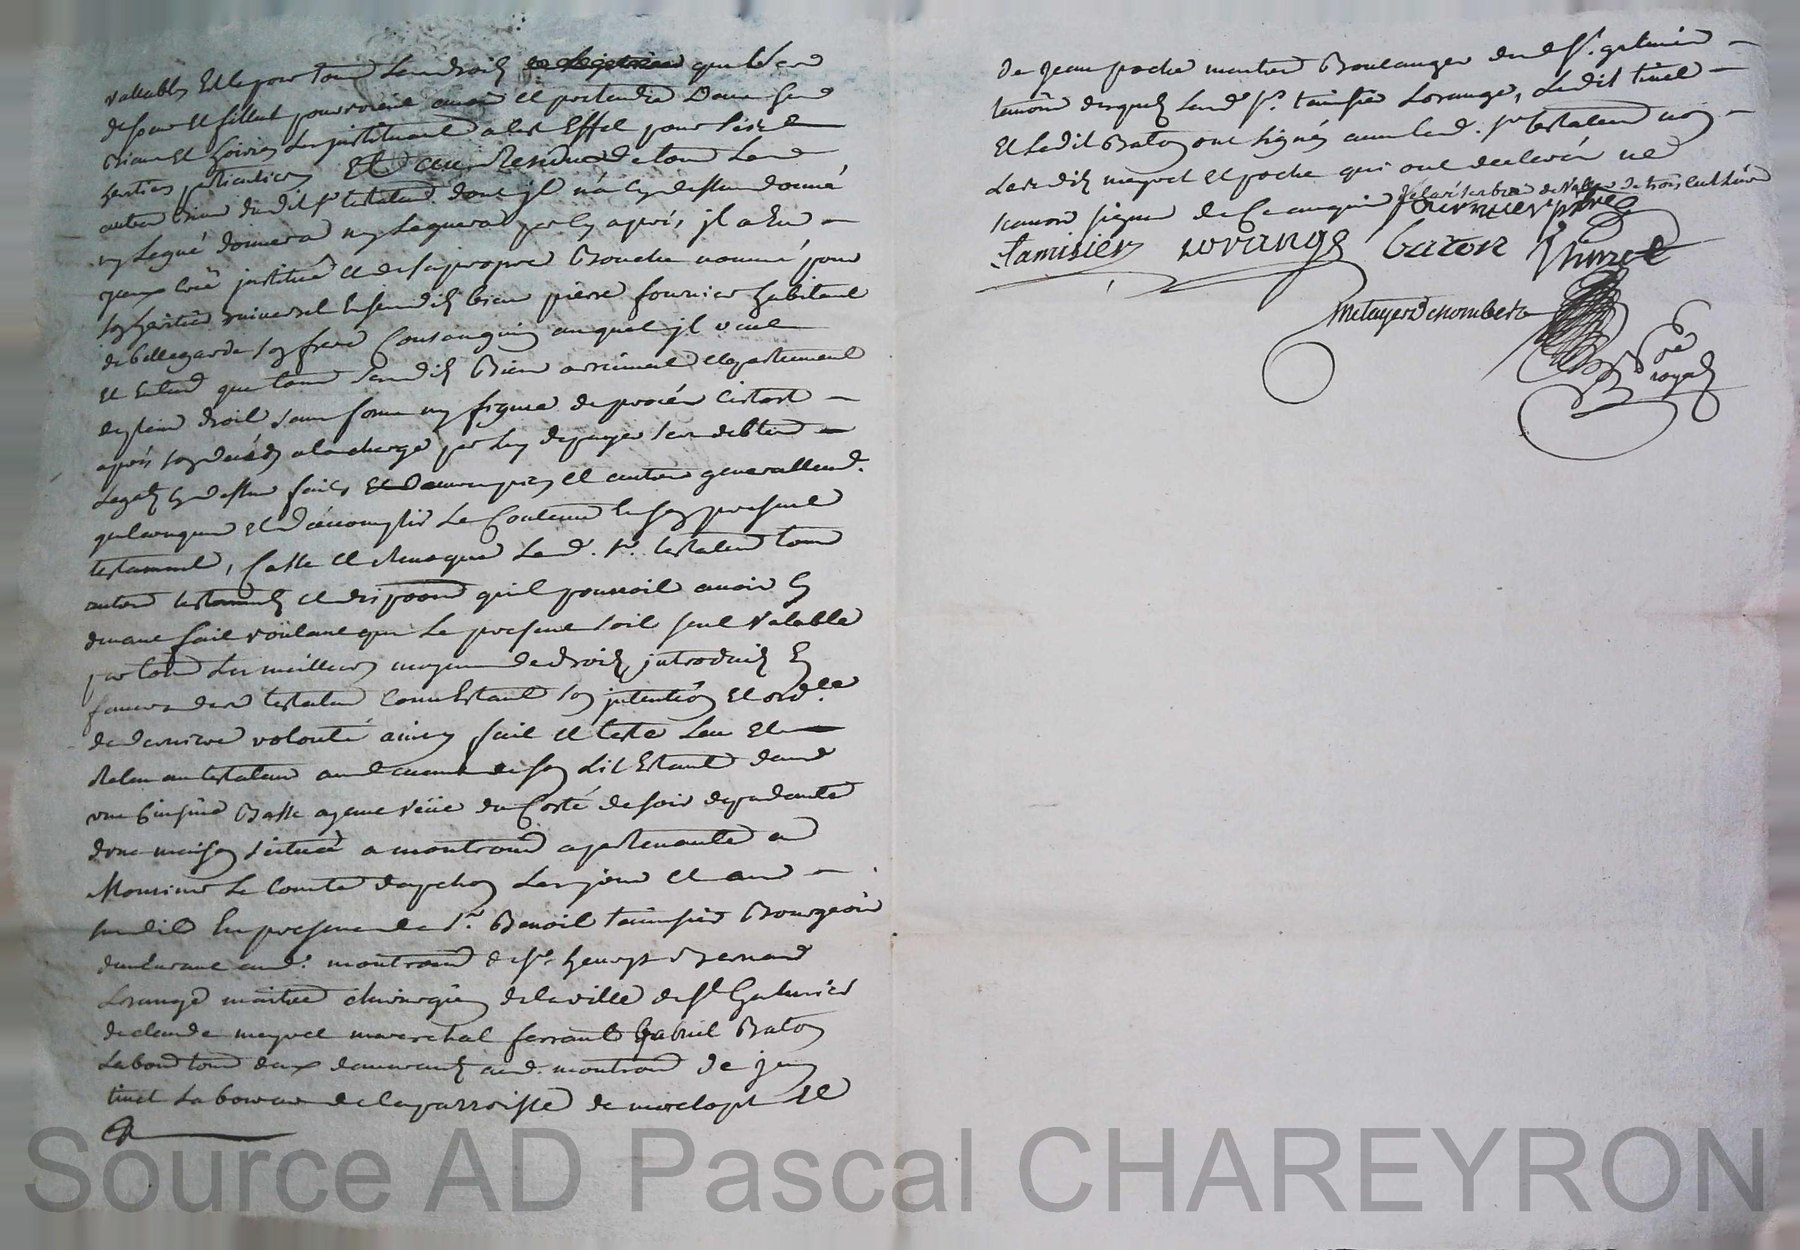 vallable Et le pour tous les droits que les
de sœur et fillul pourroient avoir et pretendre Dans ses
Biens et hoiries Les instituant a cet Effet pour ses
heritiers particuliers Et au Residu de tous Les
autres biens dudit sr testateur dont jl n'a cy dessus donné
ny legué donnera ny leguera par cy apres, jl a
creé institué et de sa propre Bouche nommé pour
son heritier universel en sesdits biens pierre fournier habitant
de bellegarde son frere Consanguin auquel jl veut
Et Entend que tous sesdits Biens arrivent et apartiennent
de plein droit sans forme ny figure de procès
après son décès a la charge par luy de payer ses debtes
Legats cy dessus faits et autres generallement
quelconques et d'accomplir Le Contenu En son present
testament, Casse et Revoque Led. sr. testateur tous
autres testaments et dispositions qu'il pourroit avoir cy
devant fait voulant que Le present soit seul valable
par tous Les meilleurs moyens de droits introduits En
faveur des testateurs Comme Estant son intention Et ord.e
de derniere volonté ainsy fait et testé Leu Et
Releu au testateur au devant de son Lit Estant dans
une Cuisine Basse ayant veüe du Costé de soir dependante
d'une maison scituée a montrond apartenante a
Monsieur Le Comte dapchon Les jour et an
susdits En presence de sr. Benoit tamisier Bourgeois
demeurant aud. montrond de sr henry Bernard
Lorange maitre chirurgien de la ville de st Galmier
de claude mayvet marechal ferrant Gabriel Baton
tous deux demeurants aud. montrond de jean
tinet Laboureur de la parroisse de Et
De jean poche maitre Boulanger dud st. galmier
temoins desquels Lesd srs. tamisier Lorange, Ledit tinet
Et Ledit Baton ont signés avec led. sr testateur non
Lesdits mayvet et poche qui ont declarés ne
scavoir signer de Ce enquis
fournier
tamisier Lorange baton tinet
Metayer Denombert
Nre
royal
Source AD Pascal CHAREYRON